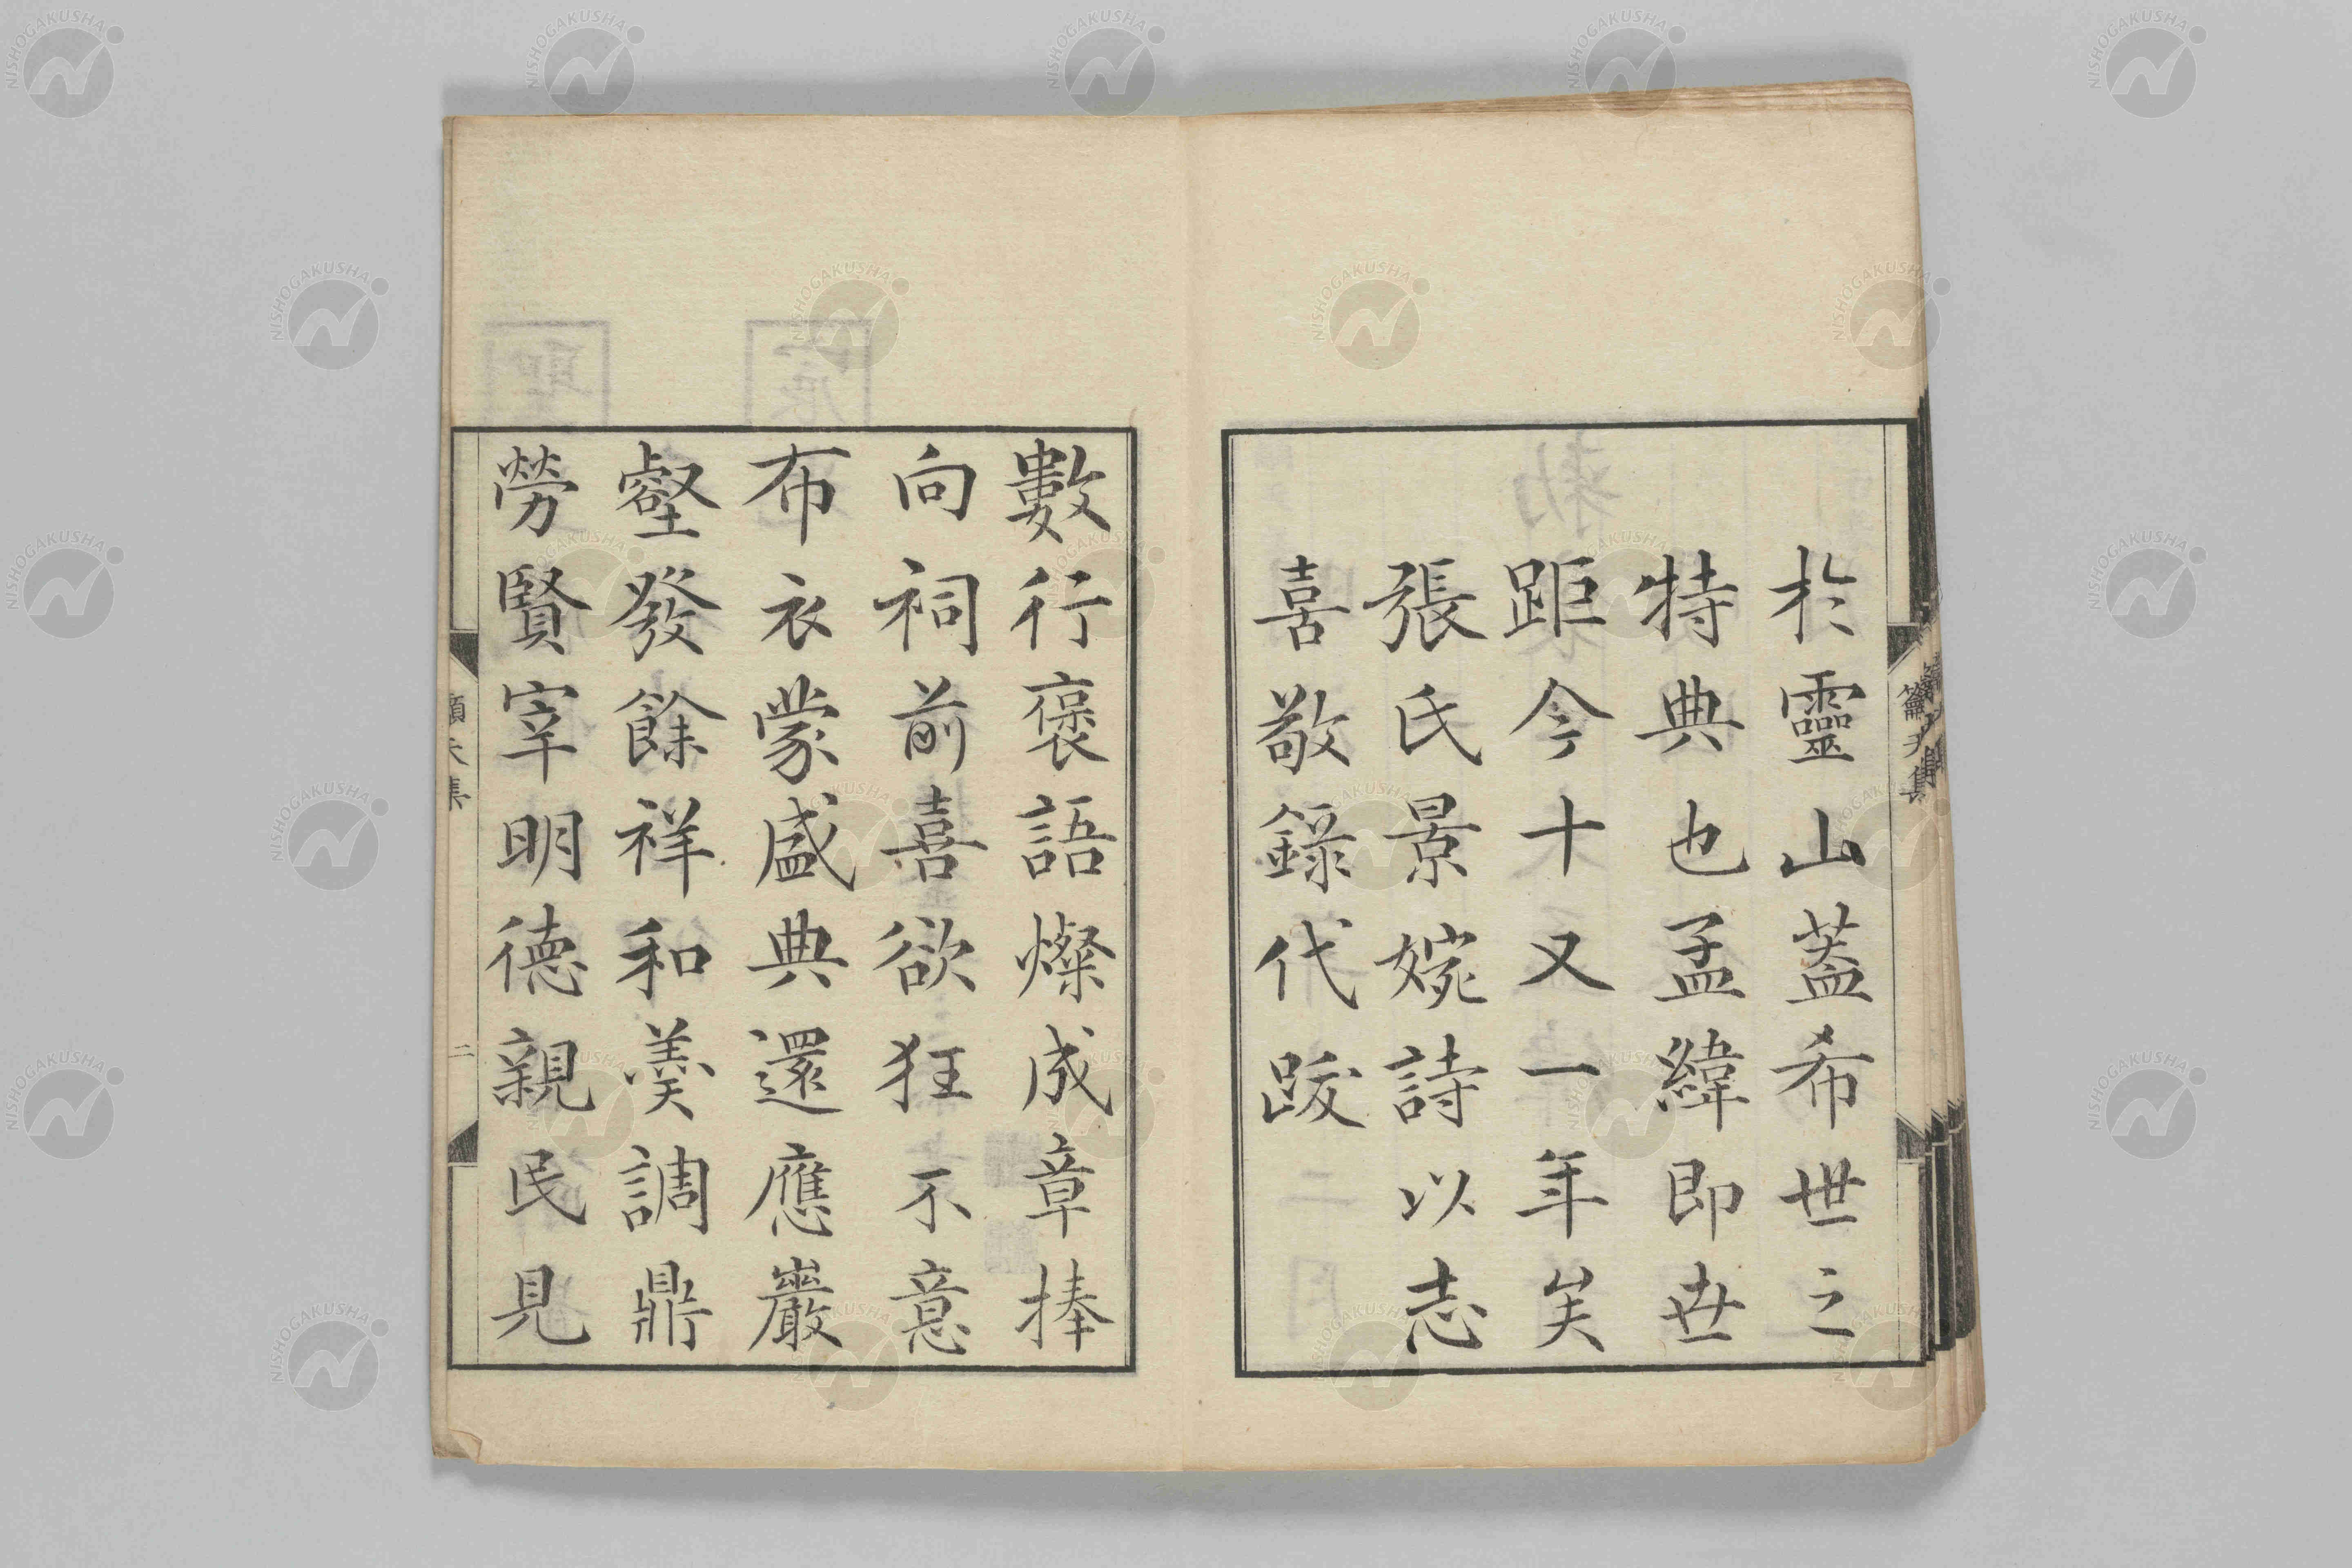 於靈山蓋希世之
特典也孟緯即世
距今十又一年矣
張氏景婉詩以志
喜敬錄代跋
數行褒語燦成章捧
向祠前喜欲狂不意
布衣蒙盛典還應巖
壑發餘祥和羹調鼎
勞賢宰明德親民見
二
NISHOGAKUSHA